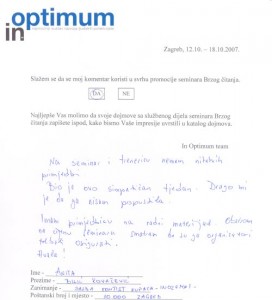 optimum
in
Zagreb, 12.10. – 18.10.2007.
Slažem se da se moj komentar koristi u svrhu promocije seminara Brzog čitanja.
DA NE
Najljepše Vas molimo da svoje dojmove sa službenog dijela seminara Brzog
čitanja zapišete ispod, kako bismo Vaše impresije uvrstili u katalog dojmova.
In Optimum team
Na seminar i trenerice nemam nikakvih
primjedbi.
Bio je ovo simpatičan tjedan. Drago mi
je da ga nisam propustila.
Imam primjedbu na radni materijal
na samu seminara smatram da to ga organizatori
trebate osigurati.
Hvala!
Ime -
Prezime -
Zanimanje -
Poštanski broj i mjesto - 10 000 ZAGREB